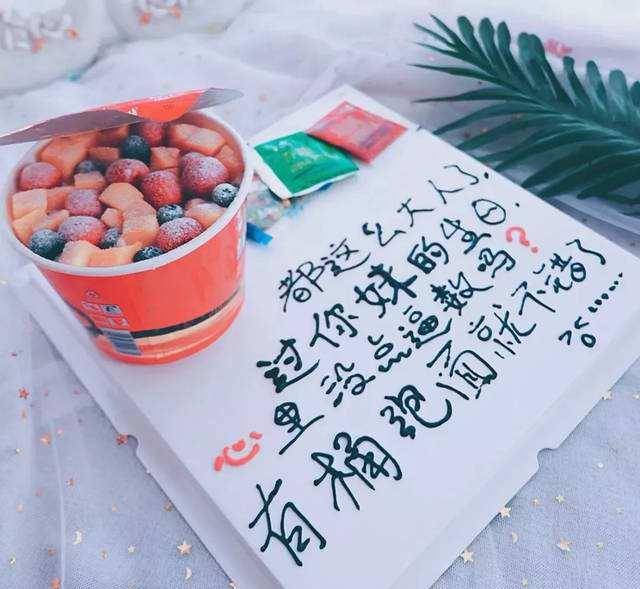 都这么大人了，
过你妹的生日，
心里没点逼数吗？
有桶泡面就不错了
75......